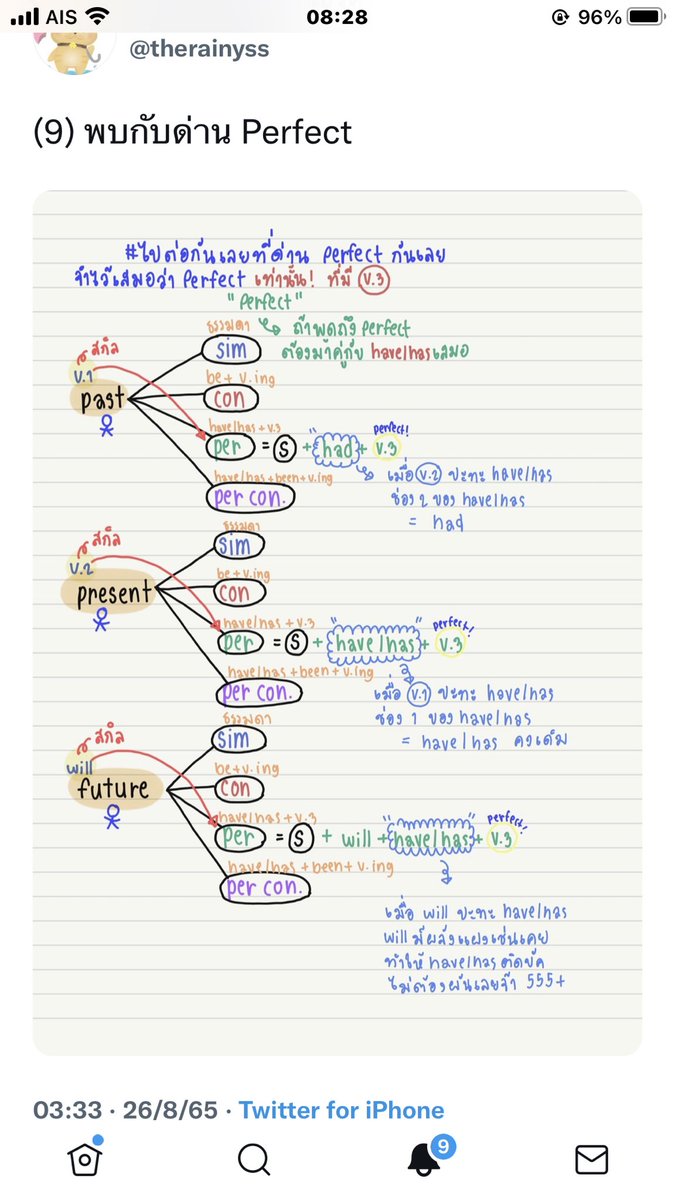 AIS 08:28 96%
@therainyss
(9) พบกับด่าน Perfect
#ไปต่อกันเลยที่ด่าน perfect กันเลย
จำไว้เสมอว่า Perfect เท่านั้น! ที่มี V.3
"Perfect"
ธรรมดา
ถ้าพูดถึง perfect
ต้องมาคู่กับ have/has เสมอ
สกิล
V.1
past
sim
be + v.ing
con
have/has + v.3
per = S + "had" + V.3
perfect!
เมื่อ V.2 ปะทะ have/has
ช่อง 2 ของ have/has
= had
have/has + been + v.ing
per con.
สกิล
V.2
present
ธรรมดา
sim
be + v.ing
con
have/has + v.3
per = S + "have/has" + V.3
perfect!
have/has + been + v.ing
per con.
เมื่อ V.1 ปะทะ have/has
ช่อง 1 ของ have/has
= have/has คงเดิม
สกิล
will
future
ธรรมดา
sim
be + v.ing
con
have/has + v.3
per = S + will + "have/has" + V.3
perfect!
have/has + been + v.ing
per con.
เมื่อ will ปะทะ have/has
will มีพลังแฝงเช่นเคย
ทำให้ have/has
ไม่ต้องผันเลยจ้า 555+
03:33 · 26/8/65 · Twitter for iPhone
9